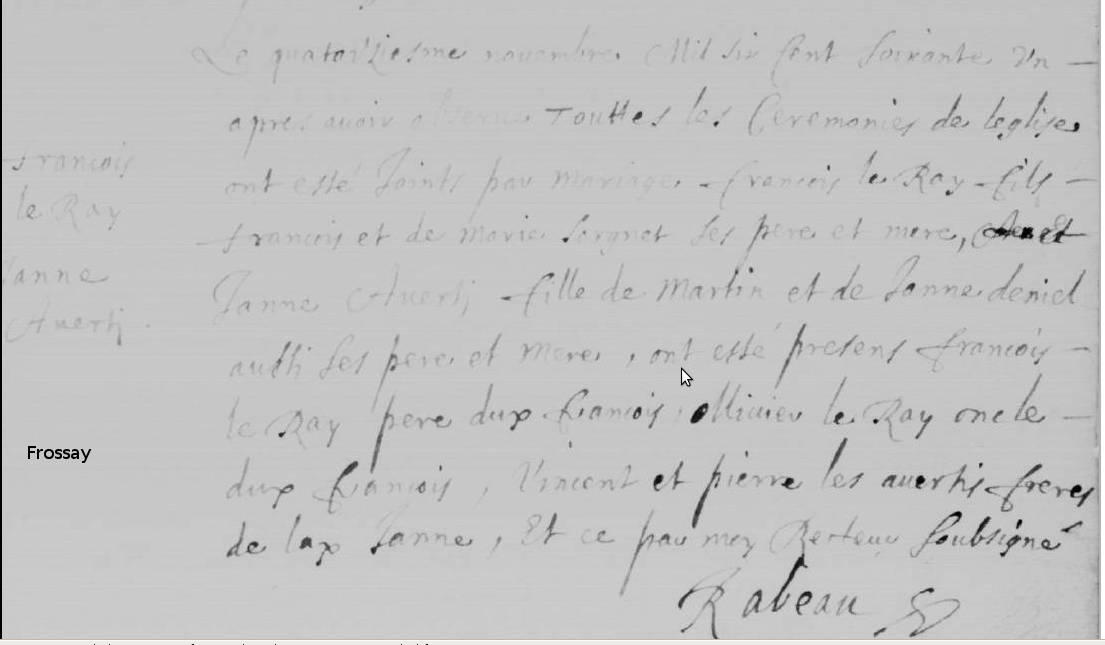 Le quatorziesme novembre Mil six Cent soixante Un
apres avoir observe Touttes les Ceremonies de leglise
francois
ont esté Joints par Mariage francois le Ray fils
le Ray
francois et de Marie Sorgnet ses pere et mere, et
Janne
Janne Averti fille de Martin et de Janne deniel
Averti.
aussi ses pere et mere, ont esté presens francois
le Ray pere dux francois, ollivier le Ray oncle
Frossay
dux francois, Vincent et pierre les avertis freres
de lax Janne, Et ce par moy Recteur soubsigné
Rabeau